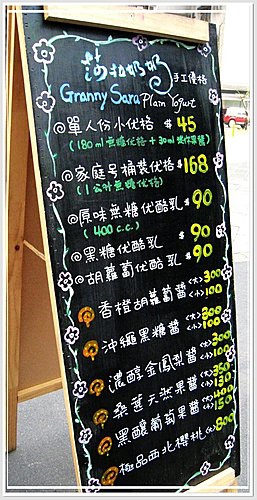 莎拉奶奶 手工優格
Granny Sara Plain Yogurt
@單人份小优格 $45
(180ml無糖优格+30ml
@家庭号桶裝优格 $168
(1公升無糖优格)
@原味無糖优酪乳 $90
(400c.c.)
@黑糖优酪乳 $90
@胡蘿蔔优酪乳 $90
香橙胡蘿蔔醬 <大>300 <小>100
沖繩黑糖醬 <大>300 <小>100
濃醇金鳳梨醬 <大>300 <小>100
桑葚天然果醬 <大>350 <小>130
黑醲葡萄果醬 <大>400 <小>150
極品西北櫻桃 <大>800